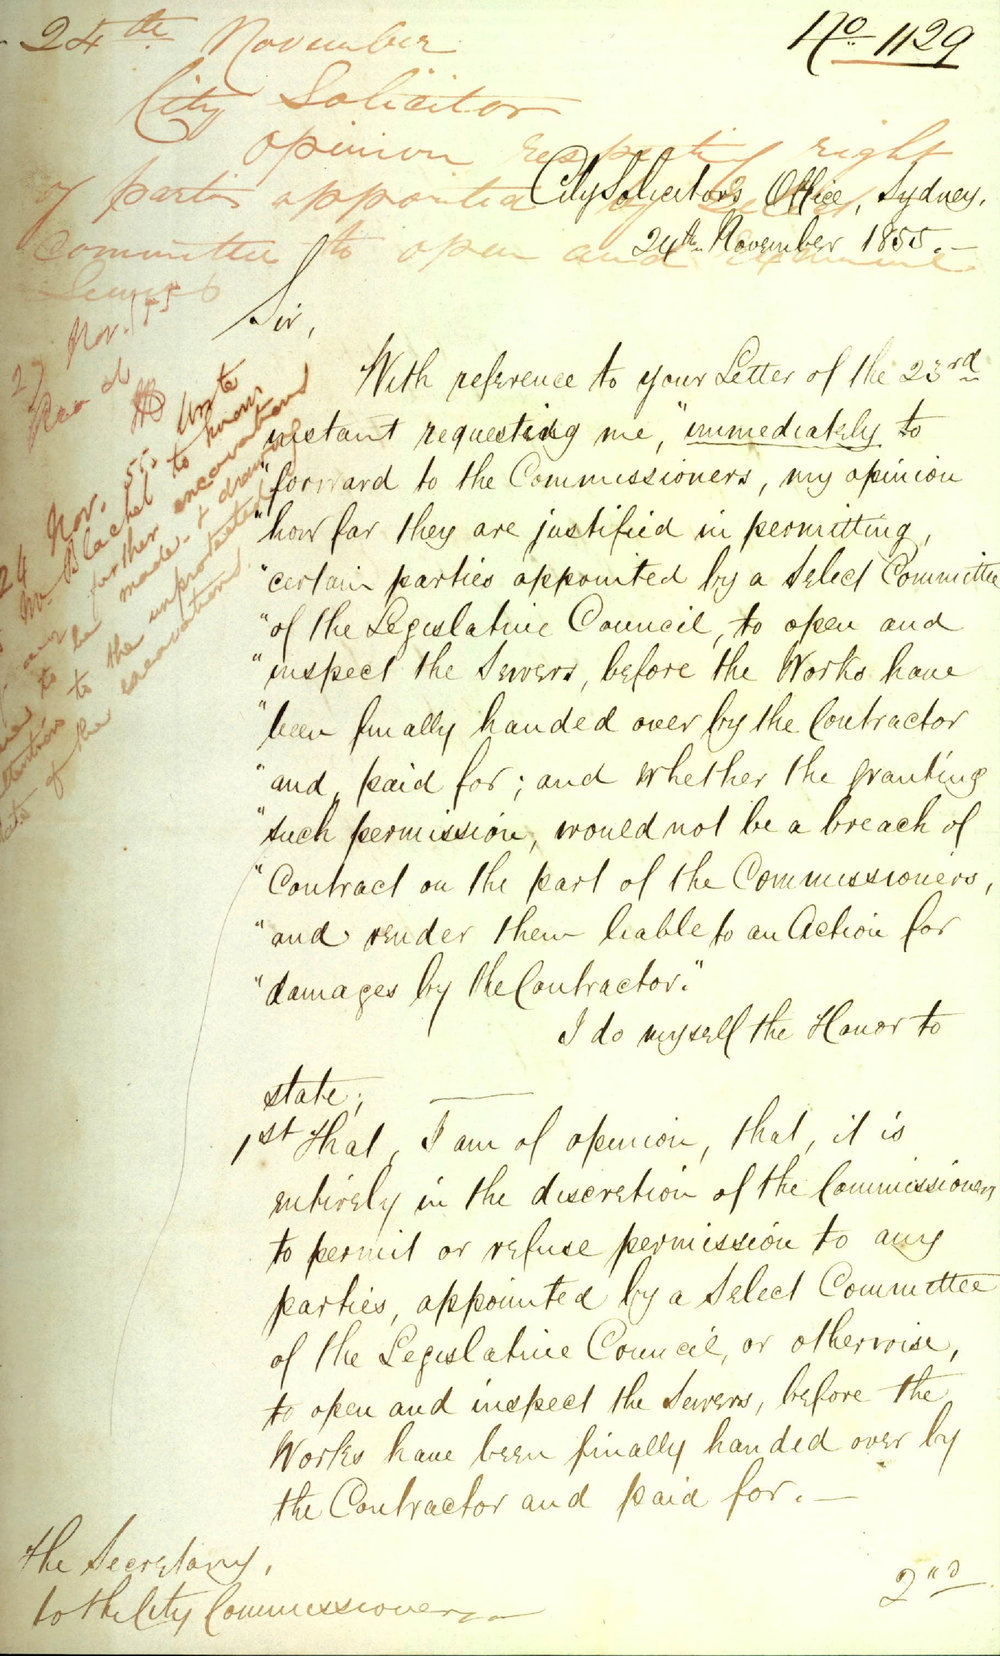 24th November
No 1129
City Solicitor
opinion respecting right
of parties appointed by Select
Committee to open and examine
Sewers
City Solicitor's Office, Sydney,
24th November 1855.—
27 Nov. 55
Read
24 Nov. 55. Wrote
Mr Blachet to know
any further excavations
to be made. & drawing
attention to the unprotected
state of the excavations.
Sir,
With reference to your Letter of the 23rd
instant requesting me, "immediately to
"forward to the Commissioners, my opinion
"how far they are justified in permitting,
"certain parties appointed by a Select Committee
"of the Legislative Council, to open and
"inspect the Sewers, before the Works have
"been finally handed over by the Contractor
"and, paid for; and whether the granting
"such permission, would not be a breach of
"Contract on the part of the Commissioners,
"and render them liable to an Action for
"damages by the Contractor."
I do myself the Honor to
state; —
1st That, I am of opinion, that, it is
entirely in the discretion of the Commissioners
to permit or refuse permission to any
parties, appointed by a Select Committee
of the Legislative Council, or otherwise,
to open and inspect the Sewers, before the
Works have been finally handed over by
the Contractor and paid for. —
The Secretary,
to the City Commissioners —
2nd